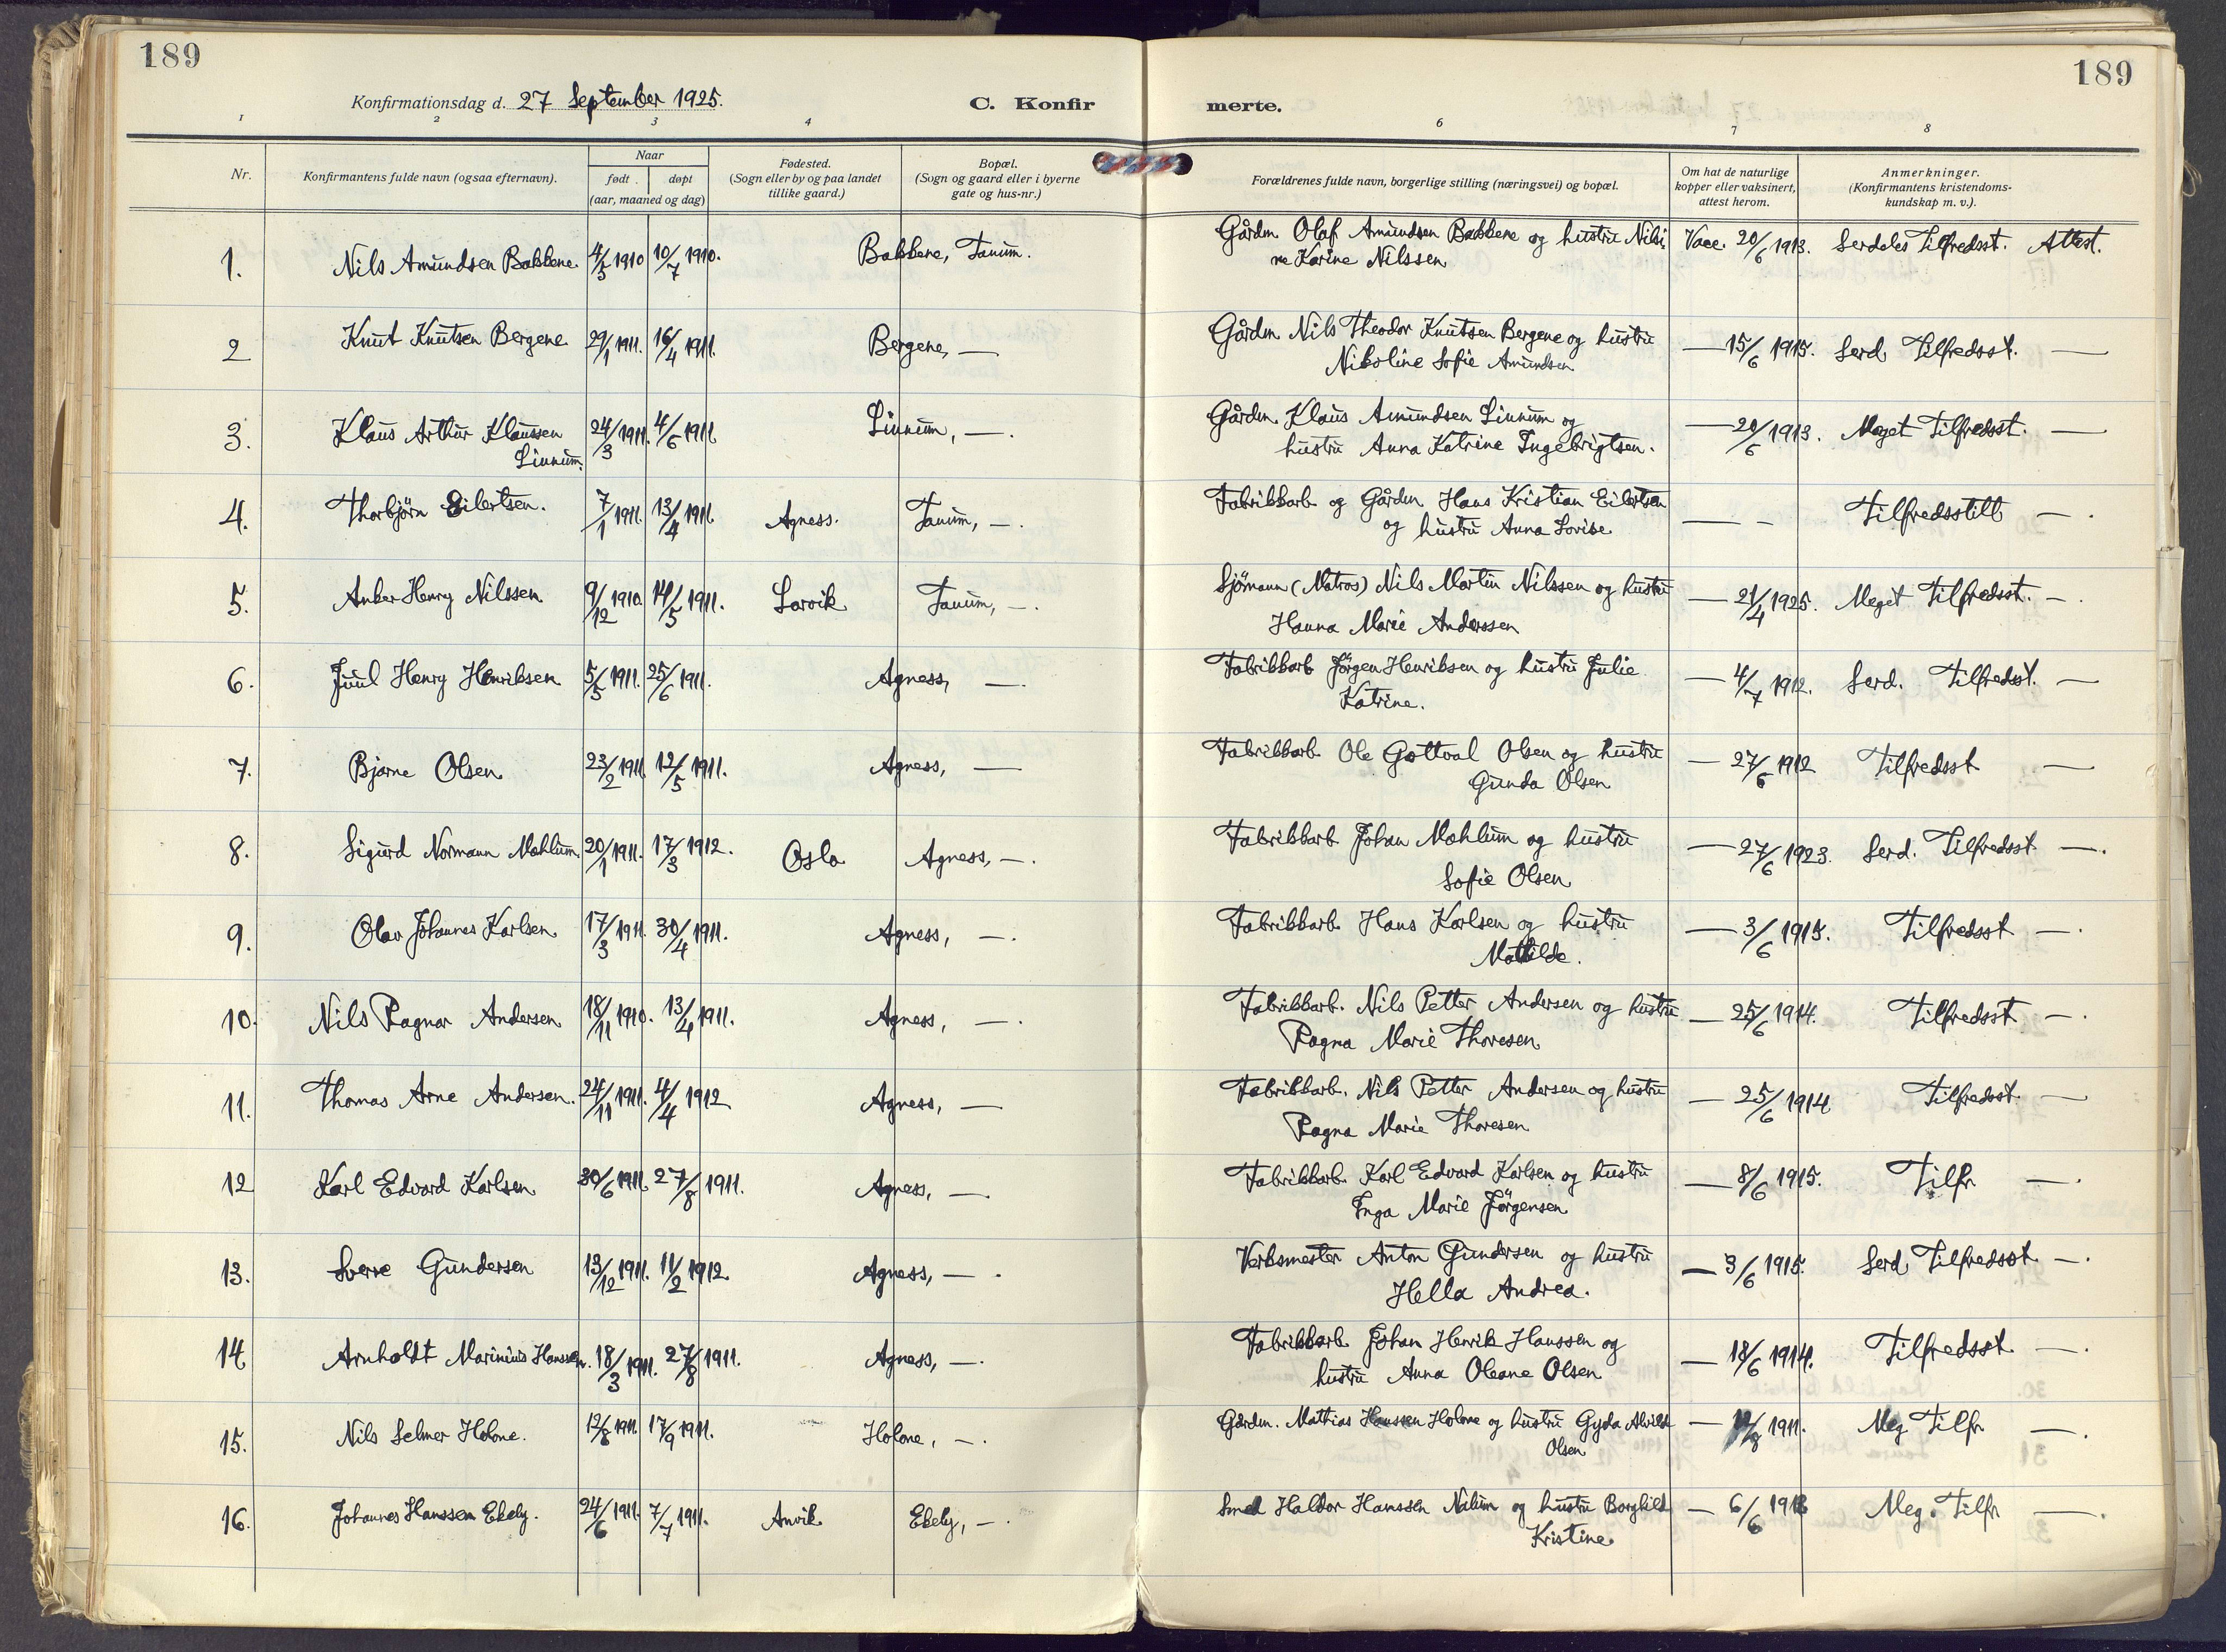 189
189
Konfirmationsdag d. 27 September 1925.
C. Konfir
merte.
1 2 3 4 6 7 8
Nr.
Konfirmantens fulde navn (ogsaa efternavn).
Naar
født døpt
(aar, maaned og dag)
Fødested.
(Sogn eller by og paa landet
tillike gaard.)
Bopæl.
(Sogn og gaard eller i byerne
gate og hus-nr.)
Forældrenes fulde navn, borgerlige stilling (næringsvei) og bopæl.
Om hat de naturlige
kopper eller vaksinert,
attest herom.
Anmerkninger.
(Konfirmantens kristendoms-
kundskap m. v.).
1. Nils Amundsen Bakkene 4/5 1910 10/7 1910. Bakkene, Tanum. Gårdm Olaf Amundsen Bakkene og hustru Niko Vacc. 20/6 1913. Serdeles Tilfredsst. Attest.
ne Karine Nilssen
2 Knut Knutsen Bergene 29/1 1911. 16/4 1911. Bergene, — Gårdm Nils Theodor Knutsen Bergene og hustru — 15/6 1915. Serd Tilfredsst. —
Nikoline Sofie Amundsen
3. Klaus Arthur Klaussen 24/3 1911. 4/6 1911. Linnum, —. Gårdm. Klaus Amundsen Linnum og — 20/6 1913. Meget Tilfredsst. —
Linnum. hustru Anna Katrine Ingebrigtsen.
4. Thorbjörn Eilertsen. 7/1 1911. 13/4 1911. Agness. Tanum, —. Fabrikkarb og Gårdm Hans Kristian Eilertsen — – Tilfredsstilt — .
og hustru Anna Lovise
5. Anker Henry Nilssen 9/12 1910 14/5 1911. Larvik Tanum, —. Sjömann (Matros) Nils Martin Nilssen og hustru — 21/4 1925. Meget Tilfredsst. —.
Hanna Marie Anderssen
6. Juul Henry Henriksen 5/5 1911. 25/6 1911. Agness, —. Fabrikkarb Jörgen Henriksen og hustru Julie — 4/7 1912. Serd. Tilfredsst. —
Katrine.
7. Bjarne Olsen 23/2 1911. 12/5 1911. Agness, — Fabrikkarb. Ole Gottval Olsen og hustru — 27/6 1912 Tilfredsst —
Gunda Olsen
8. Sigurd Normann Mæhlum 20/1 1911. 17/3 1912. Oslo Agness, —. Fabrikkarb Johan Mæhlum og hustru — 27/6 1923. Serd. Tilfredsst —.
Sofie Olsen
9. Olav Johannes Karlsen 17/3 1911. 30/4 1911. Agness, —. Fabrikkarb. Hans Karlsen og hustru — 3/6 1915. Tilfredsst —.
Mathilde.
10. Nils Ragnar Andersen 18/11 1910. 13/4 1911. Agness, —. Fabrikkarb. Nils Petter Andersen og hustru — 25/6 1914. Tilfredsst —.
Ragna Marie Thoresen
11. Thomas Arne Andersen. 24/11 1911. 4/4 1912 Agness, — Fabrikkarb. Nils Petter Andersen og hustru — 25/6 1914 Tilfredsst. —
Ragna Marie Thoresen
12 Karl Edvard Karlsen 30/6 1911. 27/8 1911. Agness, — Fabrikkarb Karl Edvard Karlsen og hustru — 8/6 1915. Tilfr —.
Inga Marie Jörgensen
13. Sverre Gundersen 13/12 1911. 11/2 1912. Agness, — . Verksmester Anton Gundersen og hustru — 3/6 1915. Serd Tilfredsst —.
Hella Andrea.
14 Arnholdt Marinius Hanssen. 18/3 1911. 27/8 1911. Agness, —. Fabrikkarb. Johan Henrik Hanssen og — 18/6 1914. Tilfredsst. —.
hustru Anna Oleane Olsen
15. Nils Selmer Holone. 12/8 1911. 17/9 1911. Holone, —. Gårdm. Mathias Hanssen Holone og hustru Gyda Alvilde — 12/8 1911. Meg Tilfr —.
Olsen
16. Johannes Hanssen Ekely. 24/6 1911. 7/7 1911. Anvik Ekely, —. Smed Haldor Hanssen Nalum og hustru Borghild — 6/6 1913 Meg. Tilfr —.
Kristine